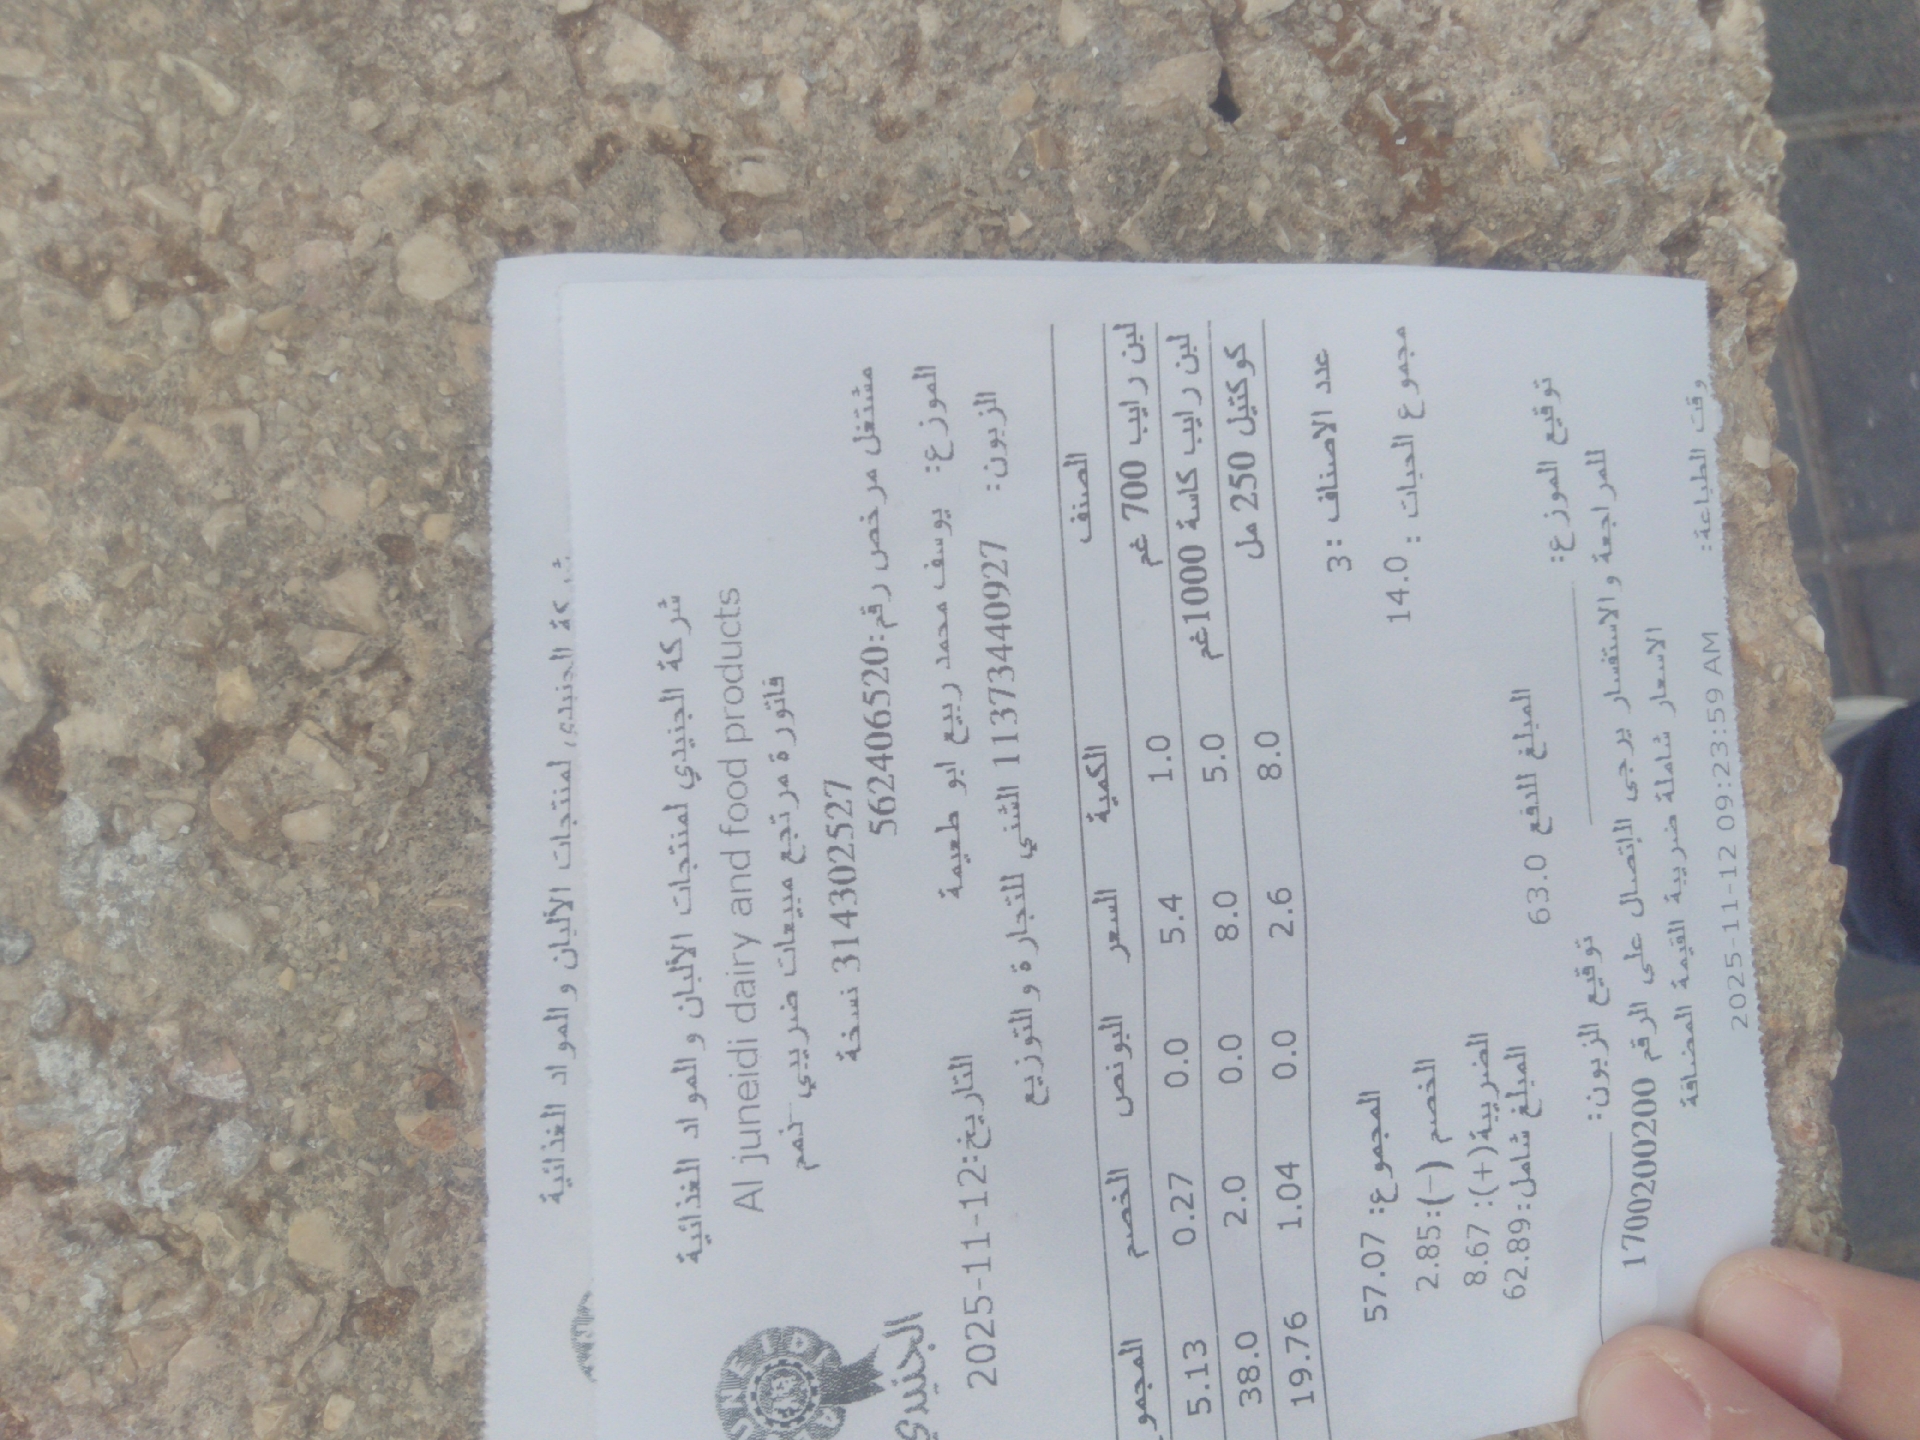 شركة الجنيدي لمنتجات الألبان والمواد الغذائية
شركة الجنيدي لمنتجات الألبان والمواد الغذائية
Al juneidi dairy and food products
فاتورة مرتجع مبيعات ضريبي
نسخة 314302527
مشتغل مرخص رقم:562406520
JUNEIDI
الجنيدي
الموزع: يوسف محمد ربيع ابو طعيمة
التاريخ:12-11-2025
الزبون: 1137344092٧ الشني للتجارة والتوزيع
الصنف الكمية السعر البونص الخصم المجمو
لبن رايب 700 غم 1.0 5.4 0.0 0.27 5.13
لبن رايب كاسة 1000غم 5.0 8.0 0.0 2.0 38.0
كوكتيل 250 مل 8.0 2.6 0.0 1.04 19.76
عدد الاصناف :3
المجموع: 57.07
مجموع الحبات : 14.0
الخصم (-):2.85
الضريبة(+): 8.67
المبلغ للدفع 63.0
المبلغ شامل:62.89
توقيع الموزع:
توقيع الزبون:
للمراجعة والاستفسار يرجى الاتصال على الرقم 1700200200
الاسعار شاملة ضريبة القيمة المضافة
وقت الطباعة: 2025-11-12 09:23:59 AM